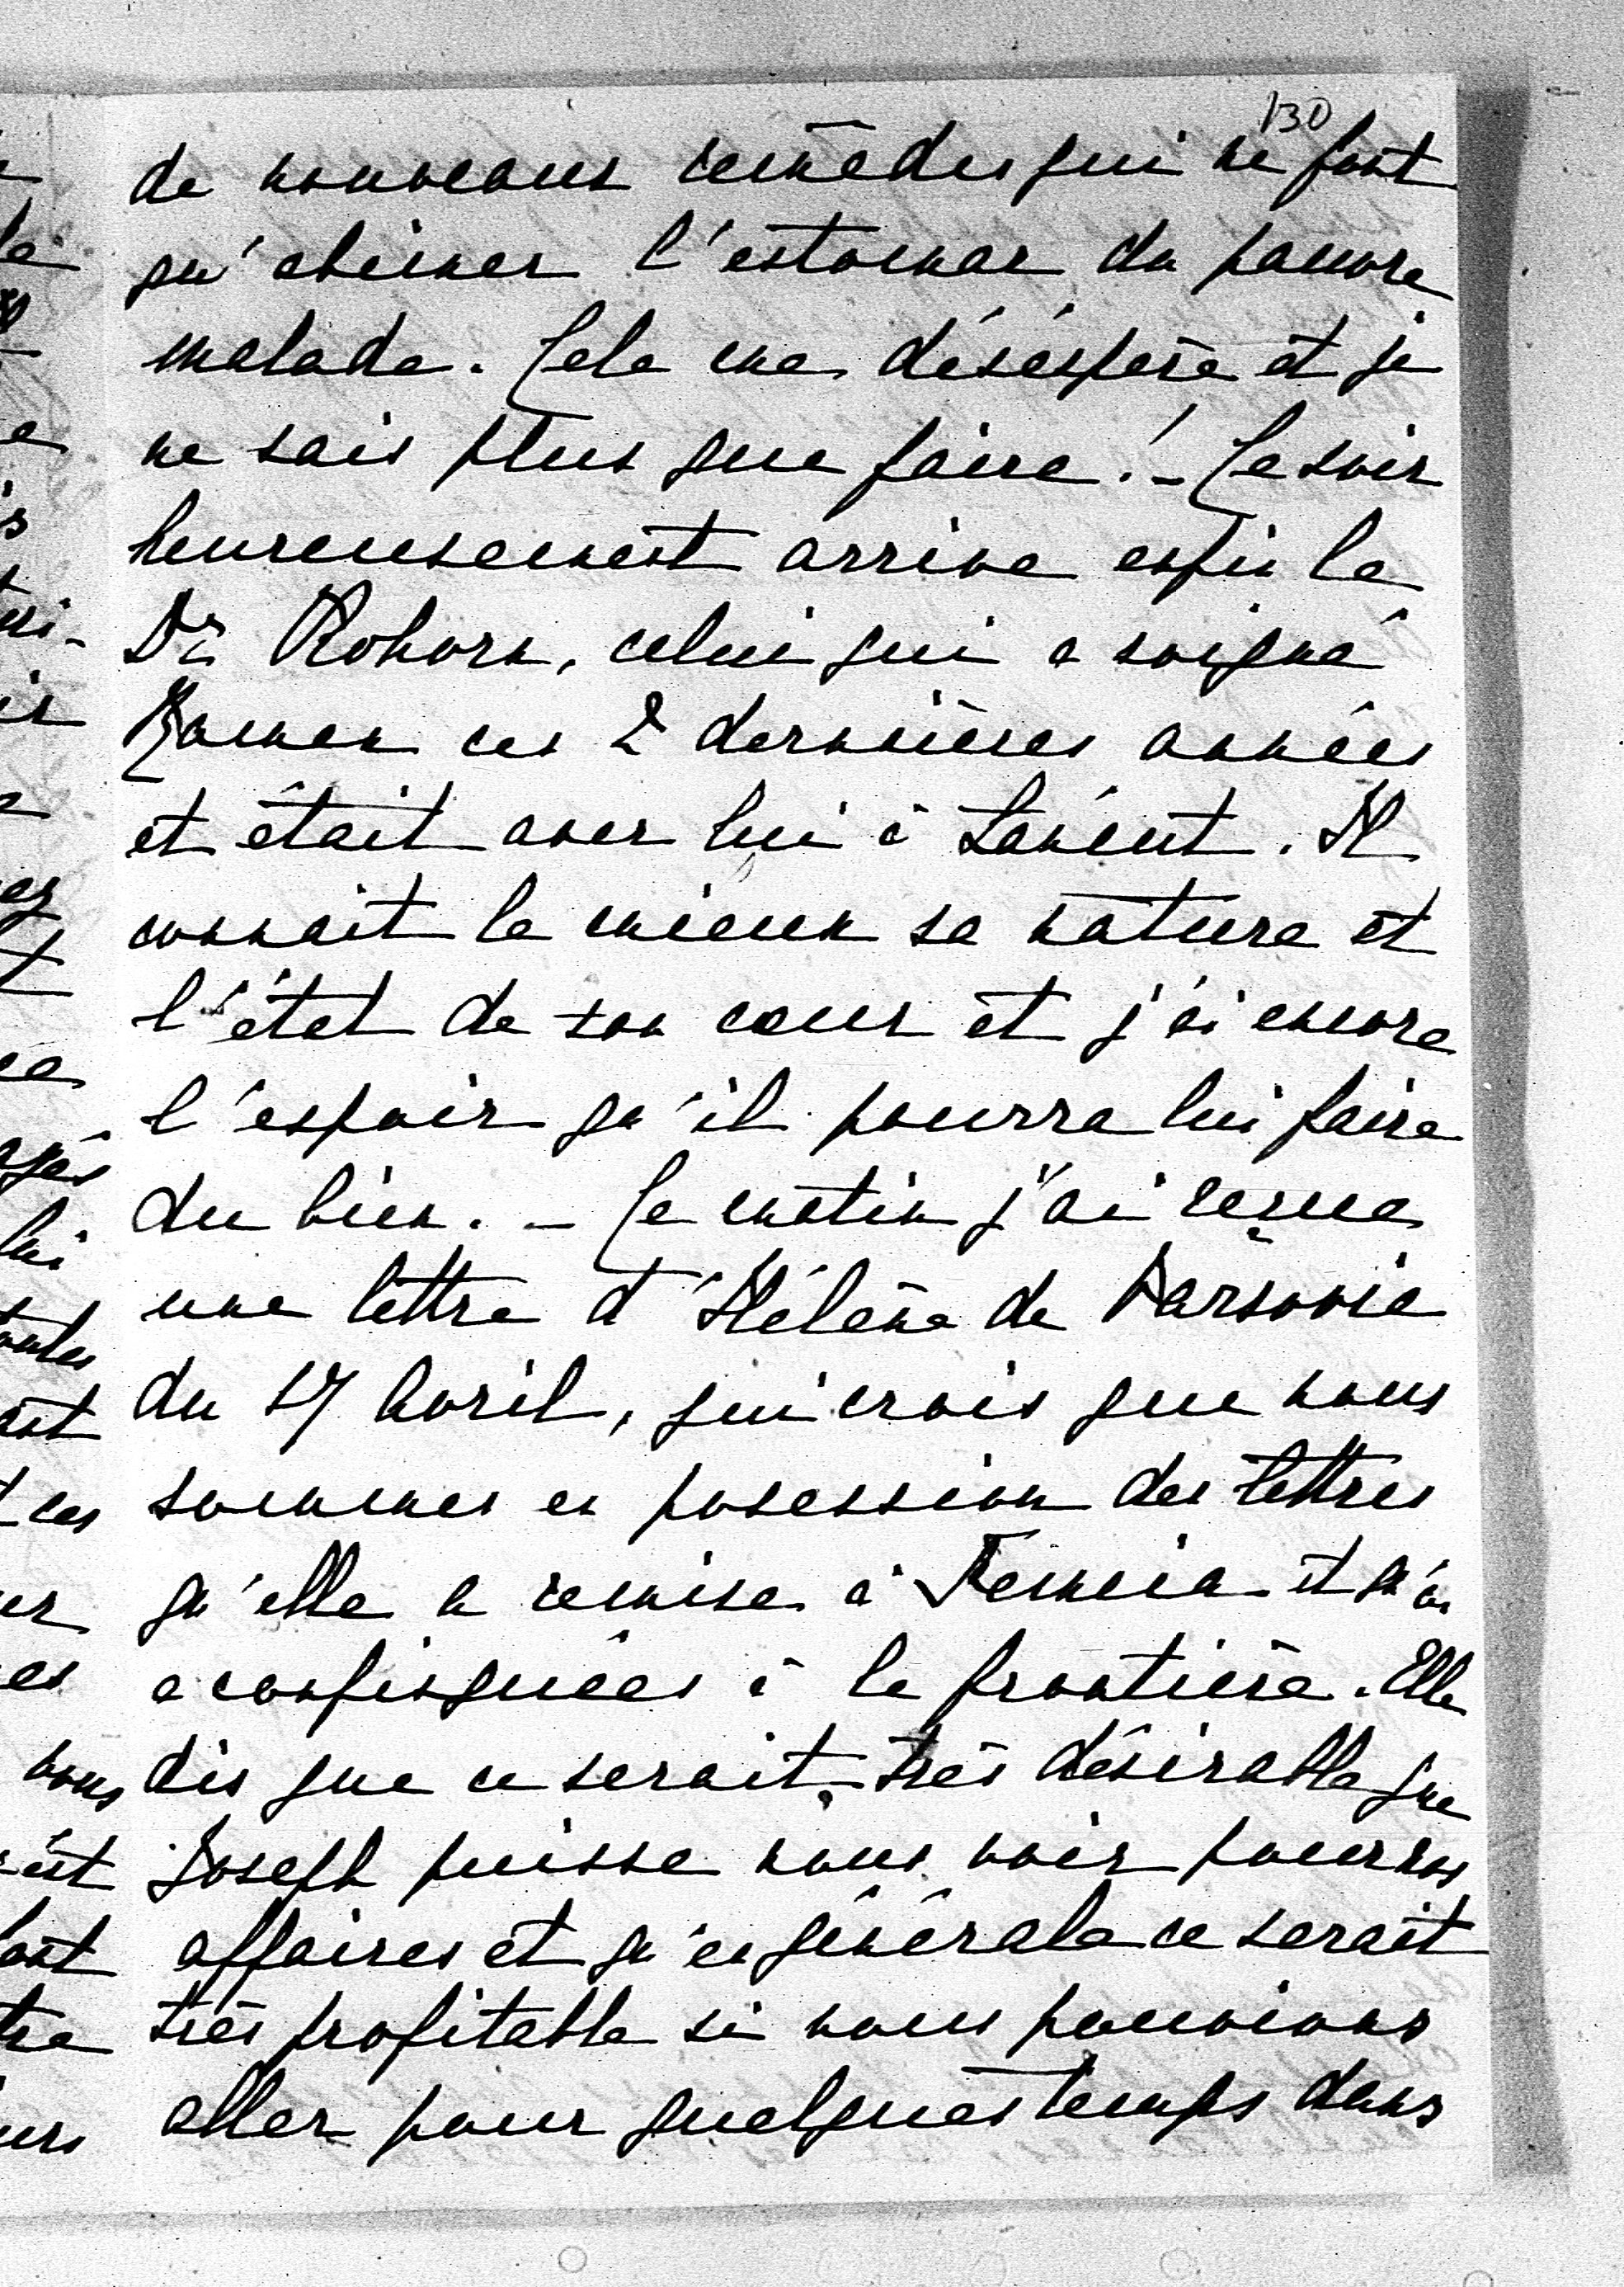 130
de nouveaux remèdes qui ne font
qu'abimer l'estomac du pauvre
malade. Cela me désèspère et je
ne sais plus que faire! – Ce soir
heureusement arrive enfin le
Dr Rohorn, celui qui a soigné
ces 2 dernières années
et était avec lui à Lancut. Il
connait le mieux sa nature et
l'état de son cœur et j'ai encore
l'espoir qu'il pourra lui faire
du bien. – Ce matin j'ai reçue
une lettre d'Hélène de Varsovie
du 17 Avril, qui crois que nous
sommes en posession des lettres
qu'elle a remise à et qu'on
a confisquées à la frontière. Elle
dis que ce serait très désirable que
Joseph puisse nous voir pour nos
affaires et qu'en générale ce serait
très profitable si nous pouvions
aller pour quelques temps dans